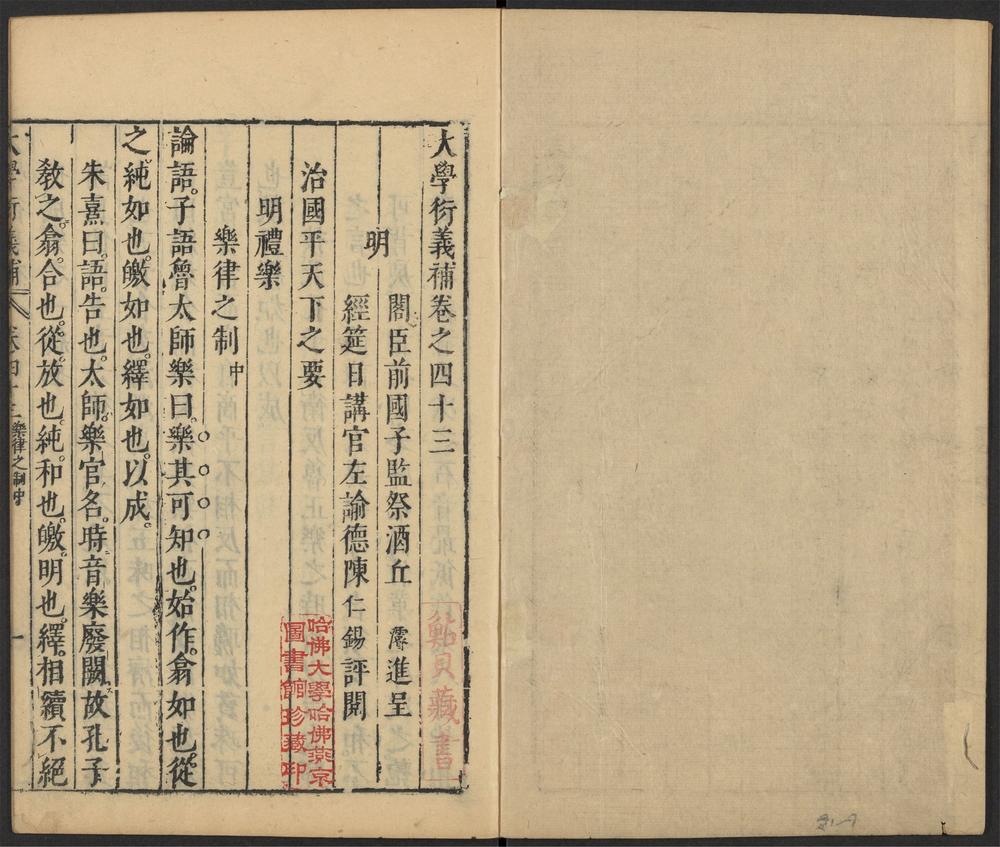 大學衍義補卷之四十三
明
閣臣前國子監祭酒丘濬進呈
經筵日講官左諭德陳仁錫評閱
治國平天下之要
明禮樂
樂律之制中
論語。子語魯太師樂曰。樂其可知也。始作。翕如也。從
之純如也。皦如也。繹如也。以成。
朱熹曰。語。告也。太師。樂官名。時音樂廢闕。故孔子
教之。翕。合也。從。放也。純。和也。皦。明也。繹。相續不絕
大學衍義補 卷四十三 樂律之制中 一
哈佛大學哈佛燕京
圖書館珍藏印
藏書